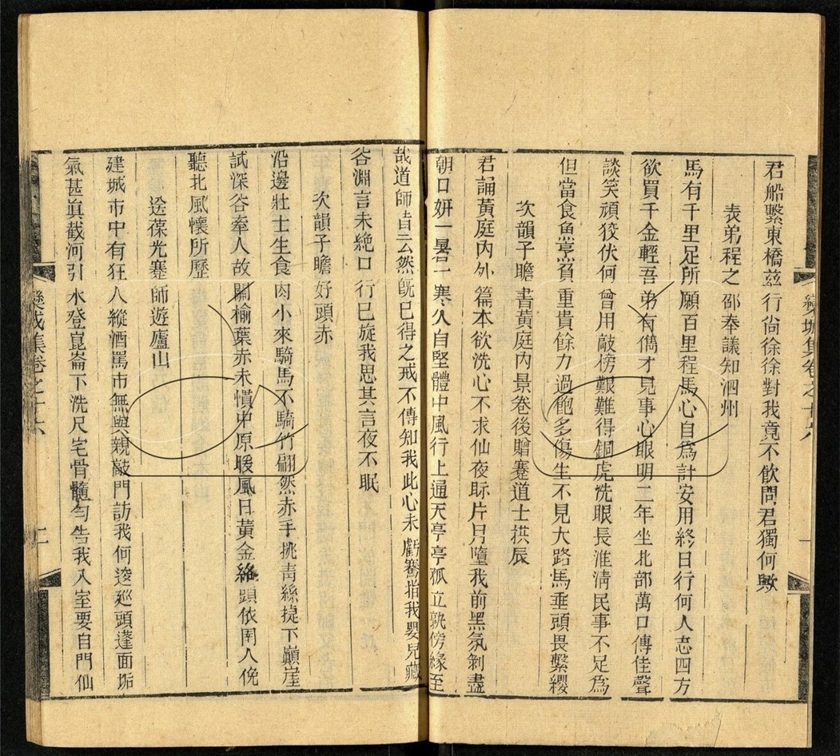 君船繫東橋茲行尙徐徐對我竟不飲問君獨何歟
表弟程之邵奉議知泗州
馬有千里足所願百里程馬心自爲計安用終日行何人志四方
欲買千金輕吾弟有儁才見事心眼明二年坐北部萬口傳佳聲
談笑頑狡伏何曾用敲搒艱難得銅虎洗眼長淮淸民事不足爲
但當食魚烹貧重貴餘力過飽多傷生不見大路馬垂頭畏繫纓
次韻子瞻書黃庭內景卷後贈蹇道士拱辰
君誦黃庭內外篇本欲洗心不求仙夜眎片月墮我前黑氛剝盡
朝日妍一暑一寒久自堅體中風行上通天亭亭孤立孰傍緣至
哉道師昔云然旣已得之戒不傳知我此心未虧騫指我嬰兒藏
谷淵言未絶口行已旋我思其言夜不眠
次韻子瞻好頭赤
沿邊壯士生食肉小來騎馬不騎竹翩然赤手挑靑絲捉下巓崖
試深谷牽人故關榆葉赤未慣中原暖風日黃金絡頭依圉人俛
聽北風懷所歷
送葆光蹇師遊廬山
建城市中有狂人縱酒罵市無與親敲門訪我何逡巡頭蓬面垢
氣甚眞截河引水登崑崙下洗尺宅骨髓勻告我入室要自門仙
欒城集卷之十六
二
欒城集卷之十六